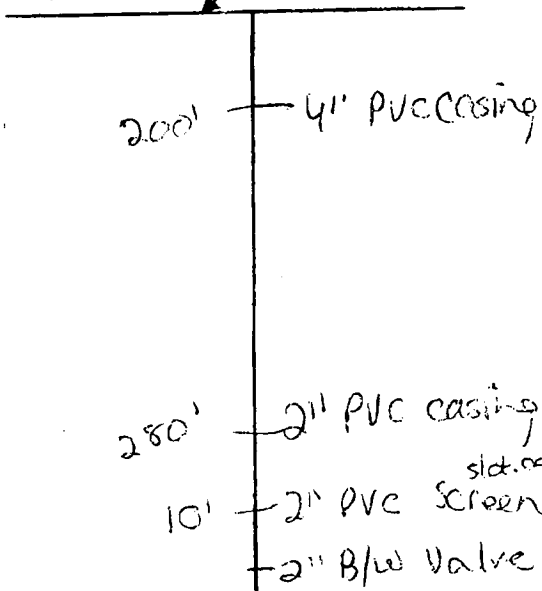 200' 4" PVC Casing
280' 2" PVC casing
slot
10' 2" PVC Screen
2" B/W Valve